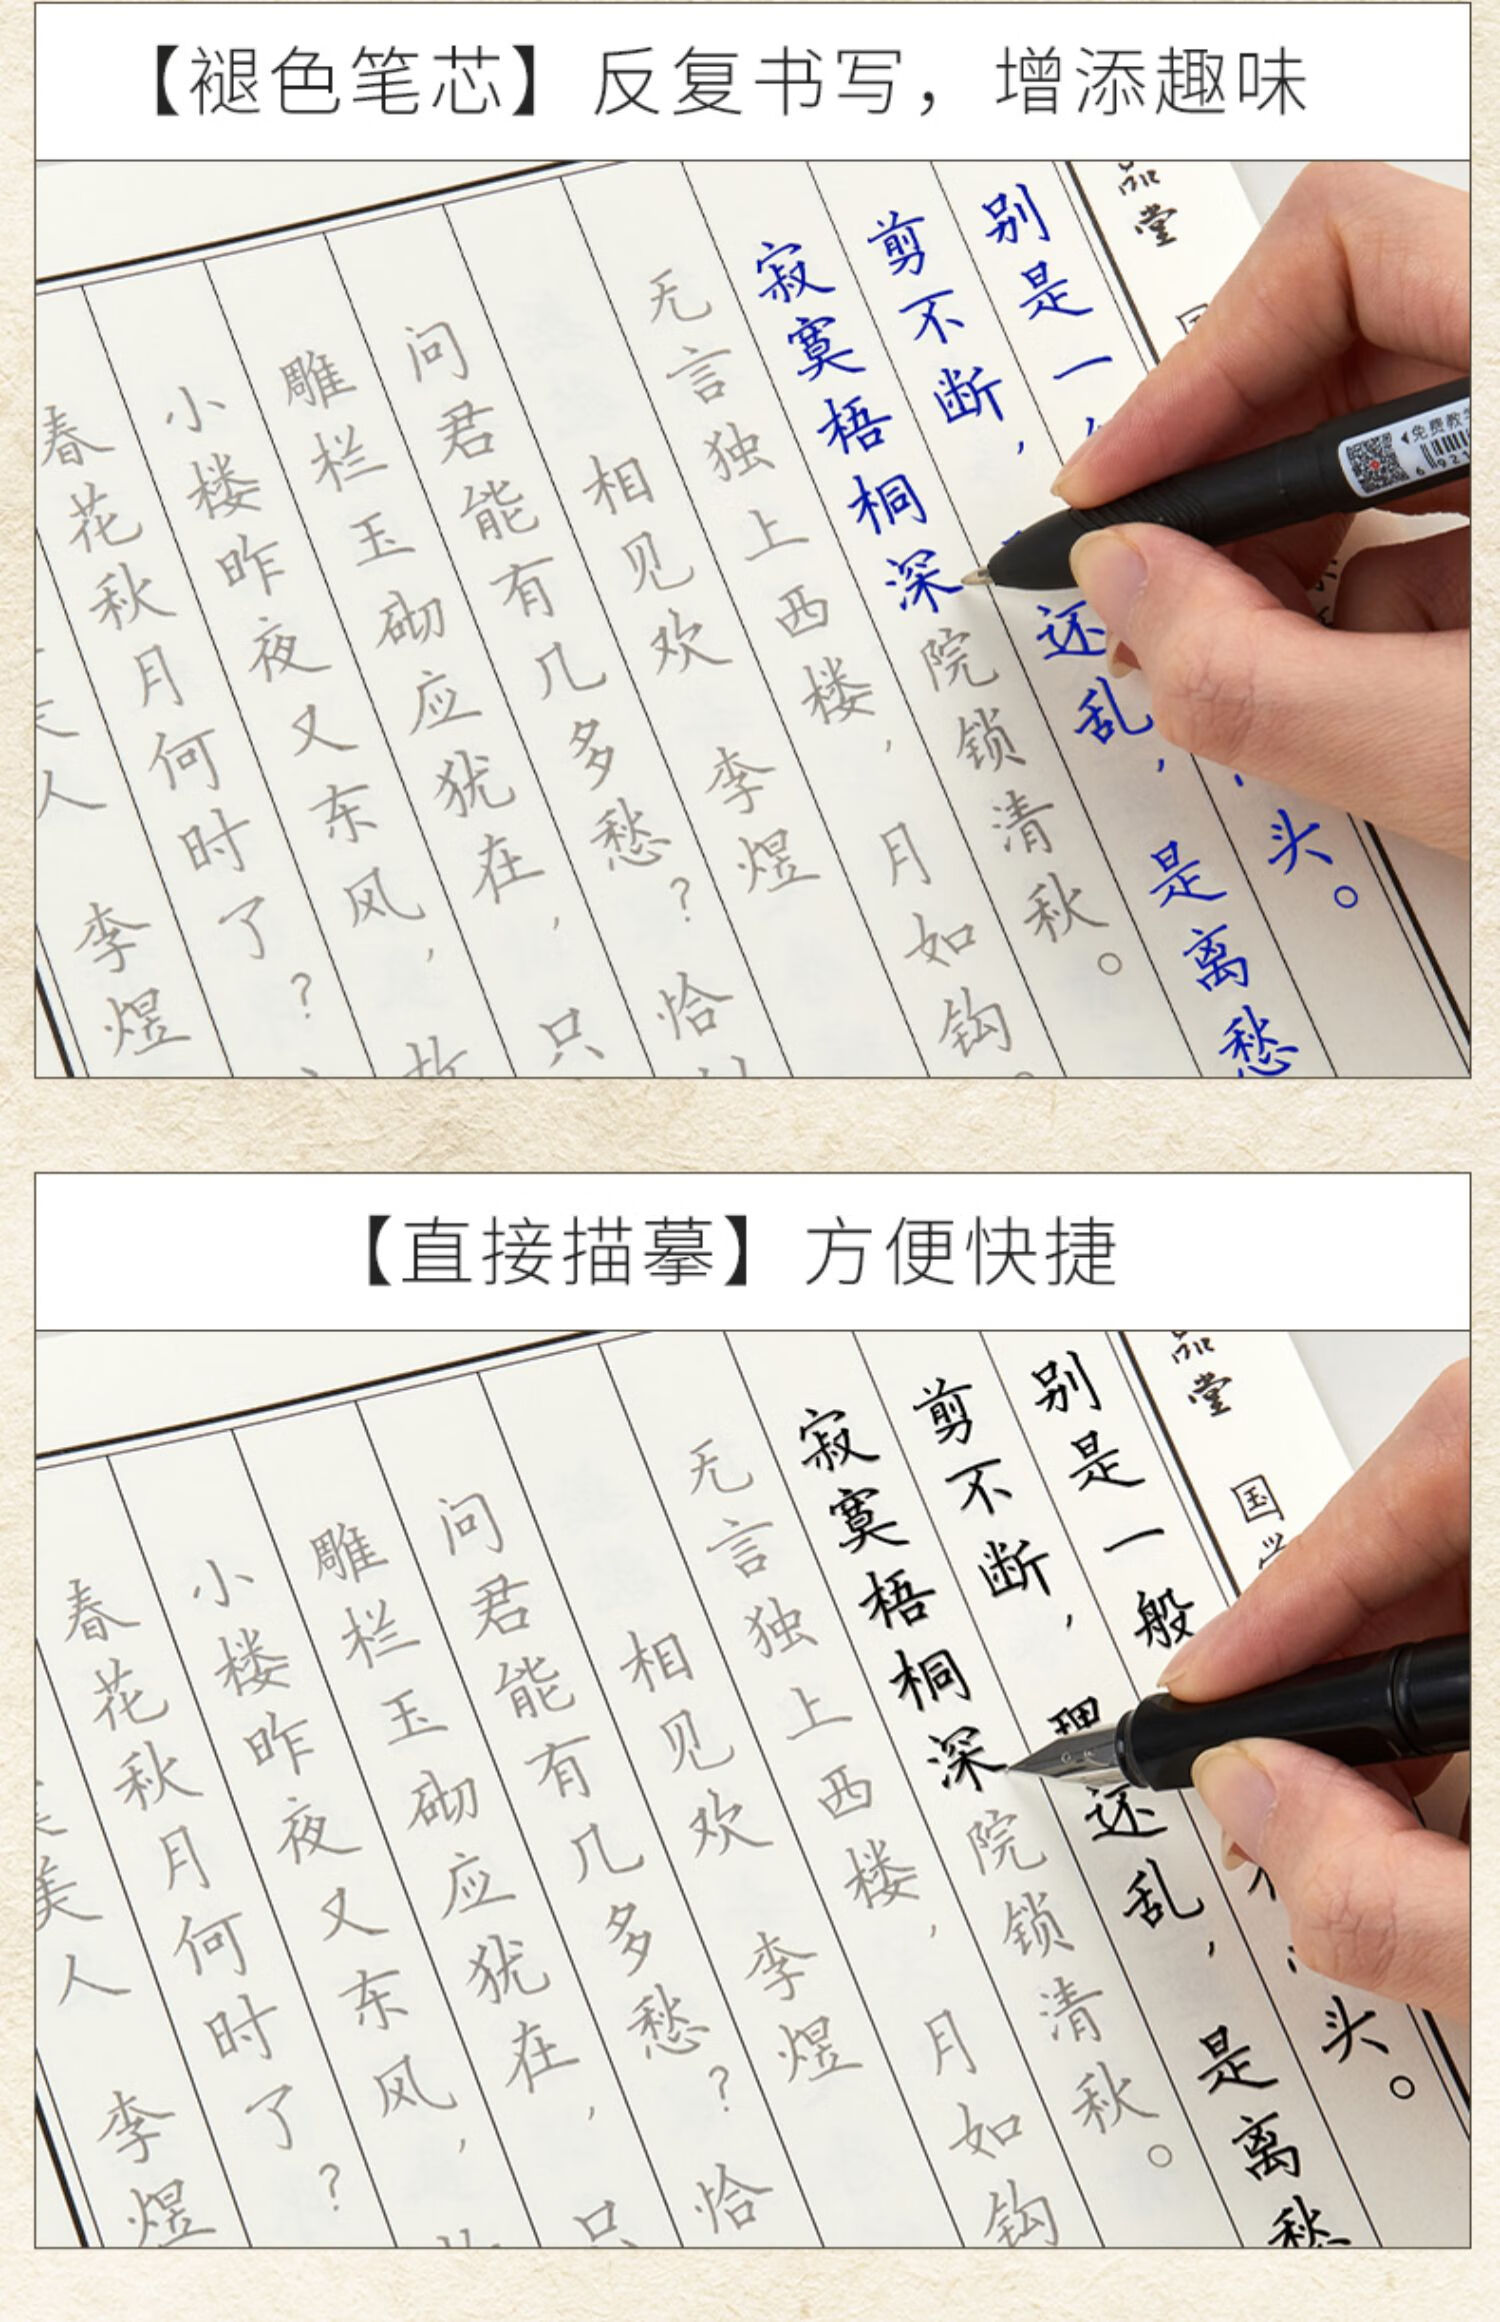 【褪色笔芯】反复书写，增添趣味
人 李煜
春花秋月何时了？
小楼昨夜又东风，故
雕栏玉砌应犹在，只
问君能有几多愁？恰
相见欢 李煜
无言独上西楼，月如钩。
寂寞梧桐深院锁清秋。
剪不断，还乱，是离愁
别是一头。
品堂 国
免费教
6 921
【直接描摹】方便快捷
美人 李煜
春花秋月何时了？
小楼昨夜又东风，
雕栏玉砌应犹在，只
问君能有几多愁？恰
相见欢 李煜
无言独上西楼，月如钩
寂寞梧桐深院锁清秋。
剪不断，理还乱，是离愁
别是一般头。
品堂 国学